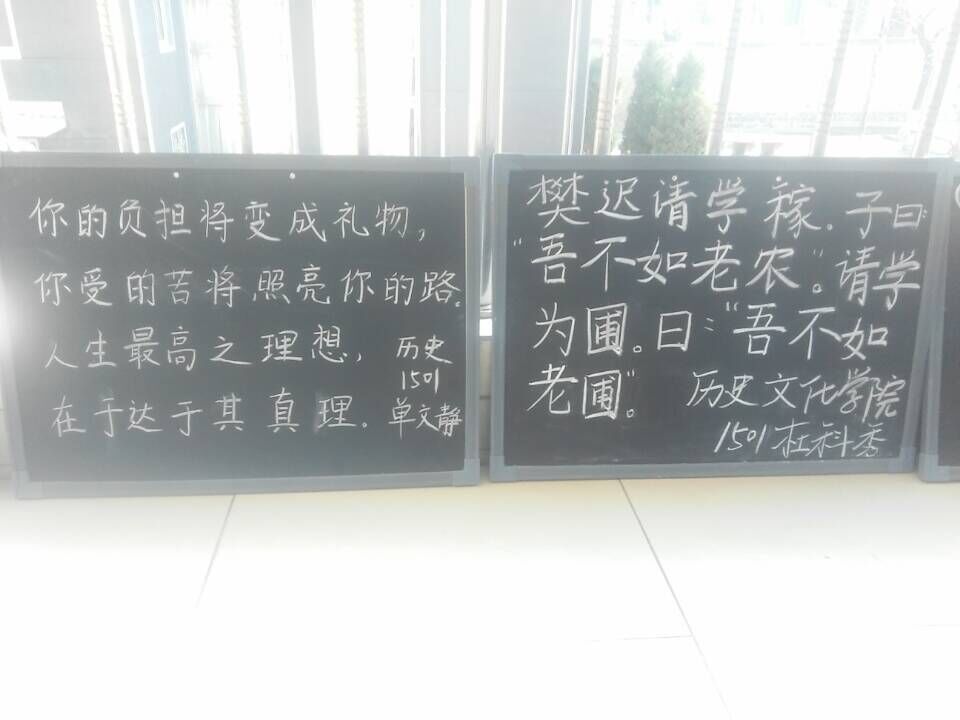 你的负担将变成礼物，
你受的苦将照亮你的路。
人生最高之理想，
在于达于其真理。
历史
1501
单文静
樊迟请学稼.子曰:
“吾不如老农”。请学
为圃。曰:“吾不如
老圃”。
历史文化学院
1501杜科秀